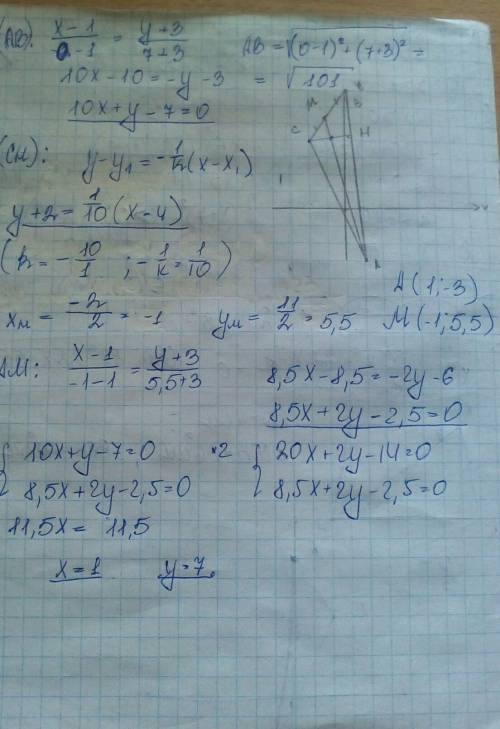 (AB): (x-1)/(0-1) = (y+3)/(7+3) AB = √((0-1)²+(7+3)²) =
10x-10=-y-3 = √101
10x+y-7=0
(CH): y-y₁=-1/k(x-x₁)
y+2=1/10(x-4)
(k=-10/1 ; -1/k=1/10)
A(1;-3)
x_M = -2/2 = -1 y_M = 11/2 = 5,5 M(-1;5,5)
AM: (x-1)/(-1-1) = (y+3)/(5,5+3) 8,5x-8,5=-2y-6
8,5x+2y-2,5=0
{ 10x+y-7=0 ×2 { 20x+2y-14=0
8,5x+2y-2,5=0 8,5x+2y-2,5=0
11,5x= 11,5
x=1 y=7.
C M B H x A